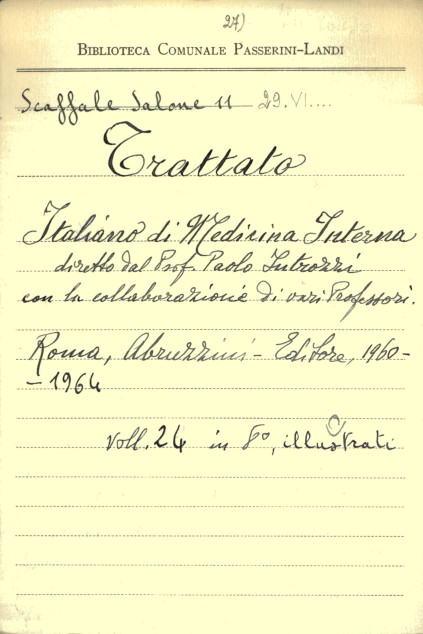 27)
BIBLIOTECA COMUNALE PASSERINI-LANDI
Scaffale Salone 11 29.VI....
Trattato
Italiano di Medicina Interna
diretto dal Prof. Paolo Introzzi
con la collaborazione di vari Professori.
Roma, Abruzzini - Editore, 1960-
-1964
voll. 24 in 8°, illustrati